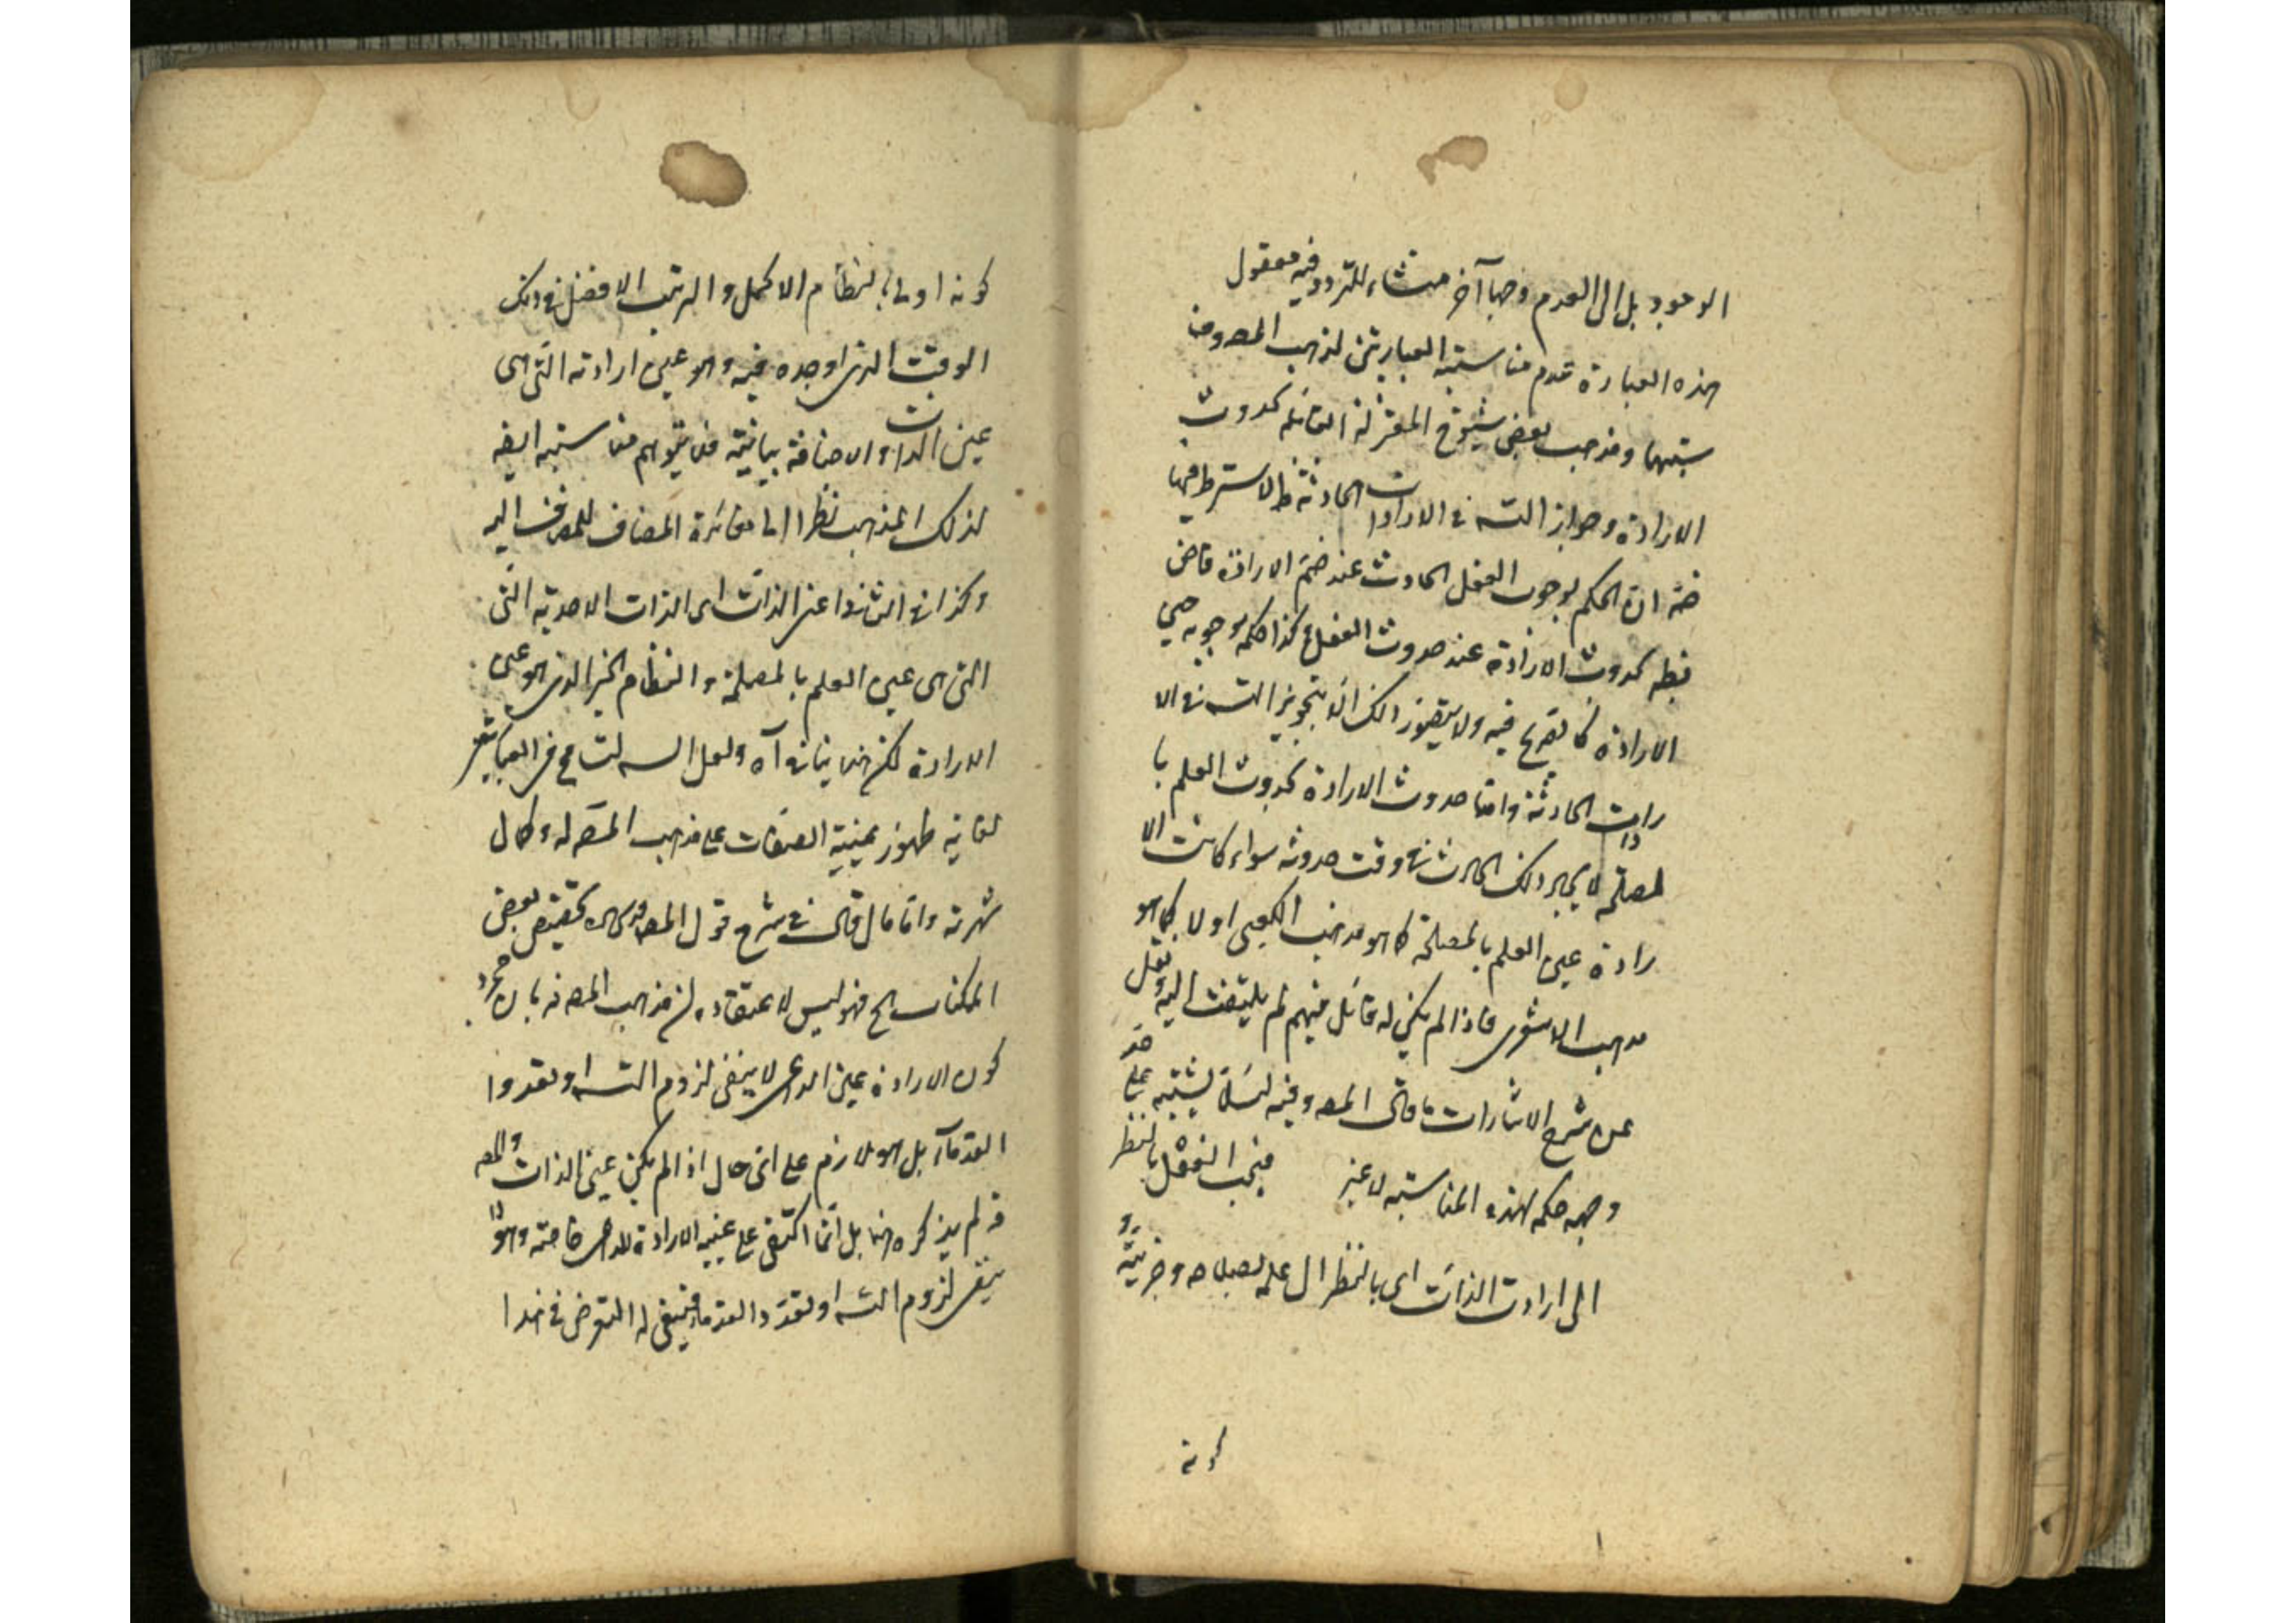 الوجود بل الى العدم وجها آخر منشاء للتردد فيه معقول
هذه العبارة عدم مناسبة العبارتين لمذهب المص ومنا
سبتهما ومذهب بعض شيوخ المعتزلة القائلة بحدوث
الارادة وجواز التسه في الارادات الحادثة
ان الحكم بوجوب الفعل الحادث عند ضم الارادة قاض
بحدوث الارادة عند حدوث الفعل كذا حكم بوجوبه حين
الارادة كما تصرح فيه ولا يتصور ذلك الا بتجويز التسه في الا
رادات الحادثة واما حدوث الارادة بحدوث العلم با
لمصلحة لايجاد ذلك الحادث في وقت حدوثه سواء كانت الا
رادة عين العلم بالمصلحة كما هو مذهب الكعبي اولا كما هو
مذهب الاشعرى فاذا لم يكن له قائل منهم لم يلتفت اليه ونقل
عن شرح الاشارات ما قال المص وفيه لئلا يشتبه على
وجه حكمه لهذه المناسبة لا غير فيجب الفعل بالنظر
الى ارادت الذات اى بالنظر الى علمه بصلاحه وخيريته و
كونه
كونه اولى بالنظام الاكمل والترتيب الافضل في ذلك
الوقت الذى اوجده فيه وهو عين ارادته التى هى
عين الذات والاضافة بيانية فلا يتوهم مناسبته ايضه
لذلك المذهب نظرا الى مغائرة المضاف للمضاف اليه
وكذا في الثانى اعنى الذات اى الذات الاحدية التى
التى هى عين العلم بالمصلحة والنظام الخير الذى هو عين
الارادة لكن هنا ينافي آه ولعل التسامح في العبارتين
لغاية ظهور عينية الصفات على مذهب المص له وكمال
شهرته واما ما قال في شرح قول المص قدس سره تخصيص بعض
الممكنات الخ فهو ليس لاعتقاده ان مذهب المص فه بان مجرد
كون الارادة عين الداعى لا ينفى لزوم التسه او تعدد
القدمآء بل هو لازم على اى حال اذا لم يكن عين الذات والمص
فه لم يذكره هنا بل انما اكتفى على عينية الارادة للداعى خاصة وهو لا
ينفى لزوم التسه او تعدد القدماء فينبغى له التعرض في هذا